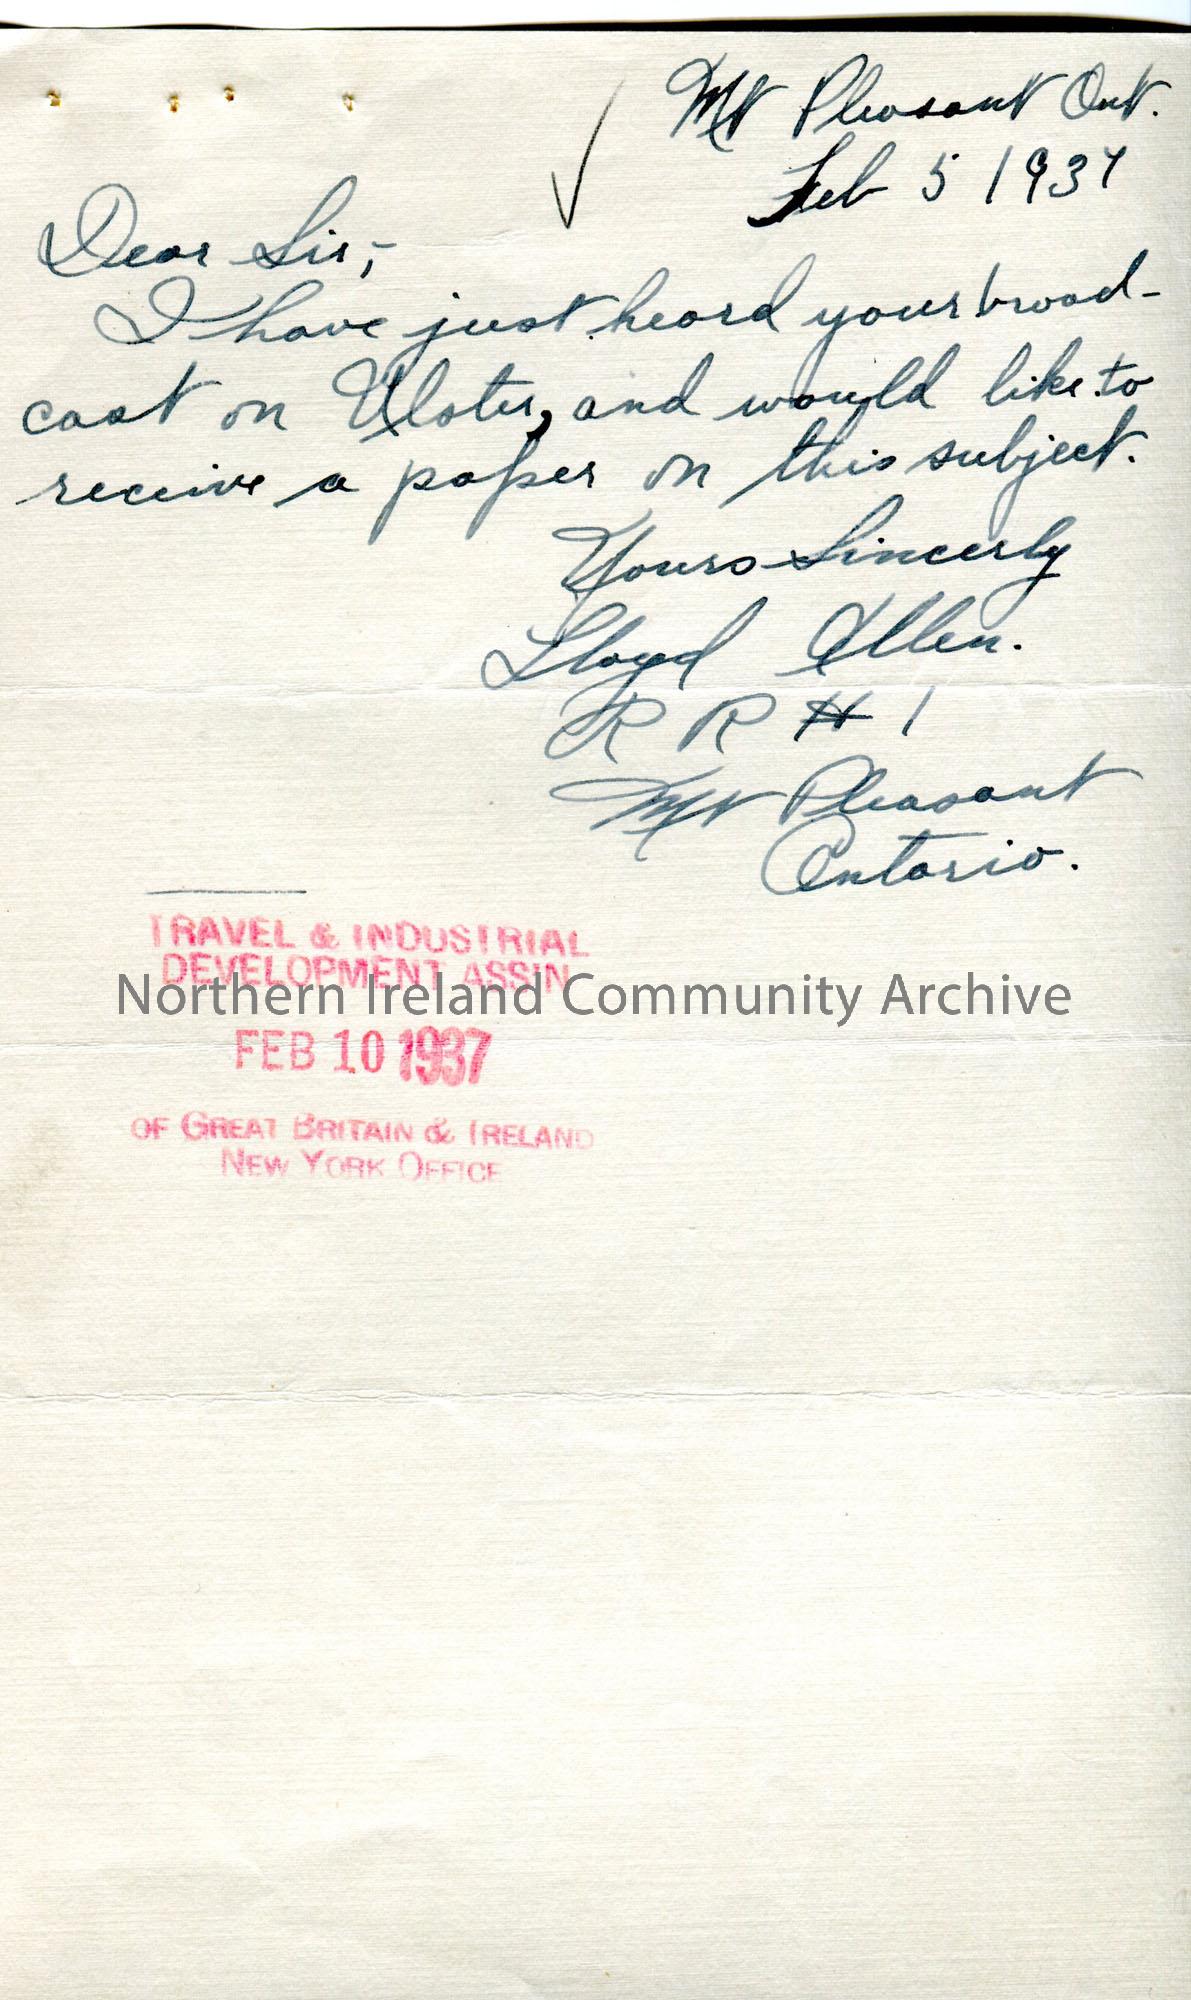 Mt Pleasant Ont.
Feb 5 1937
Dear Sir,-
I have just heard your broad-
cast on Ulster, and would like to
receive a paper on this subject.
Yours Sincerly
Lloyd Allen.
R R # 1
Mt Pleasant
Ontario.
TRAVEL & INDUSTRIAL
DEVELOPMENT ASSIN
Northern Ireland Community Archive
FEB 10 1937
OF GREAT BRITAIN & IRELAND
NEW YORK OFFICE